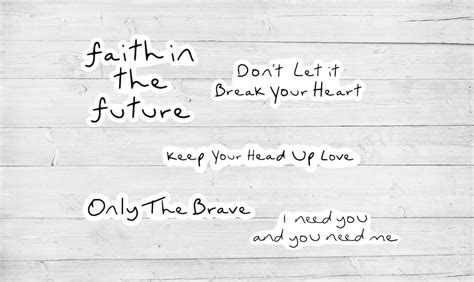 faith in
the
future
Don't Let it
Break Your Heart
Keep Your Head Up Love
Only The Brave
I need you
and you need me